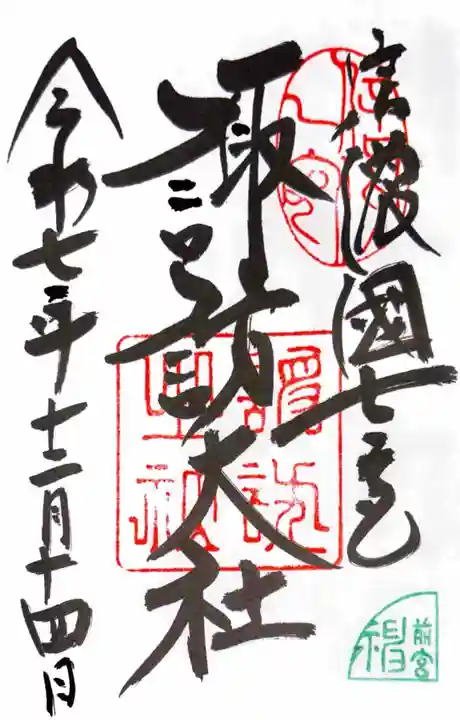 信濃國一之宮
諏訪大社
令和七年十二月十四日
前宮